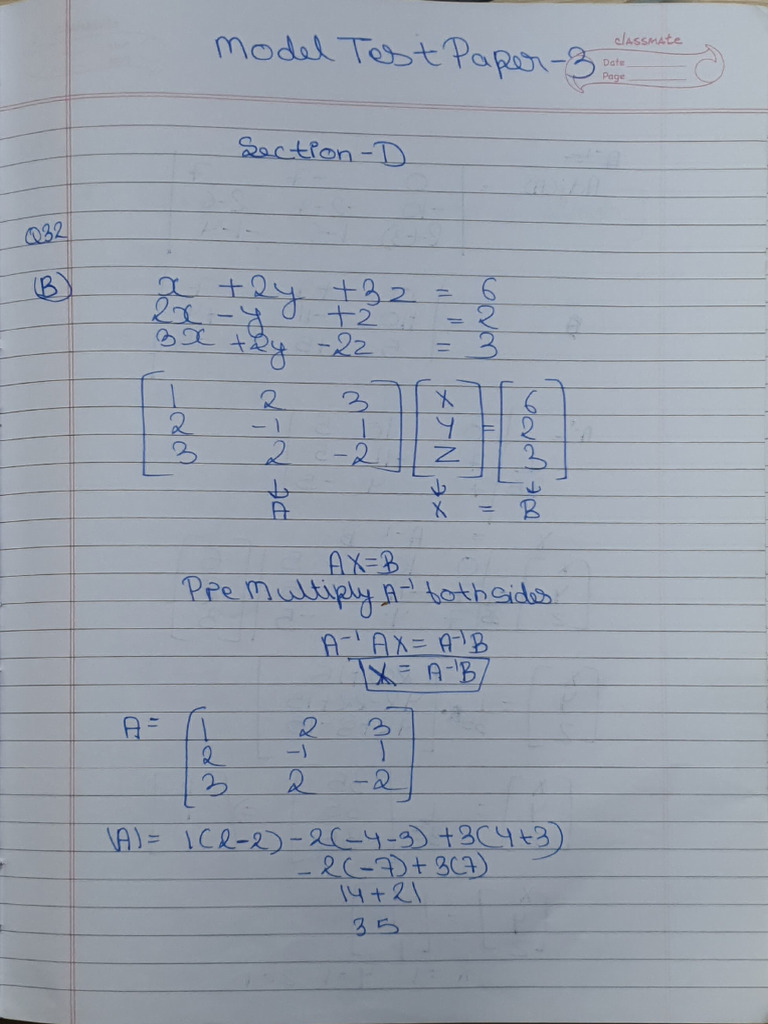 Model Test Paper-3
classmate
Date
Page
Section-D
Q32
(B)
x + 2y + 3z = 6
2x - y + z = 2
3x + 2y - 2z = 3
[1 2 3] [x] [6]
[2 -1 1] [y] = [2]
[3 2 -2] [z] [3]
↓ ↓ ↓
A X = B
AX=B
Pre Multiply A⁻¹ both sides
A⁻¹ AX = A⁻¹B
X = A⁻¹B
A = [1 2 3]
[2 -1 1]
[3 2 -2]
|A| = 1(2-2) - 2(-4-3) + 3(4+3)
- 2(-7) + 3(7)
14 + 21
35